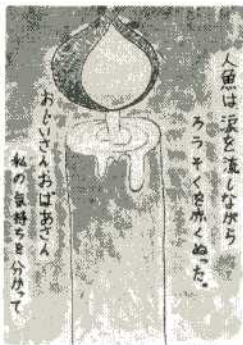 人魚は涙を流しながら
ろうそくを赤くぬった。
おじいさんおばあさん
私の気持ちを分かって